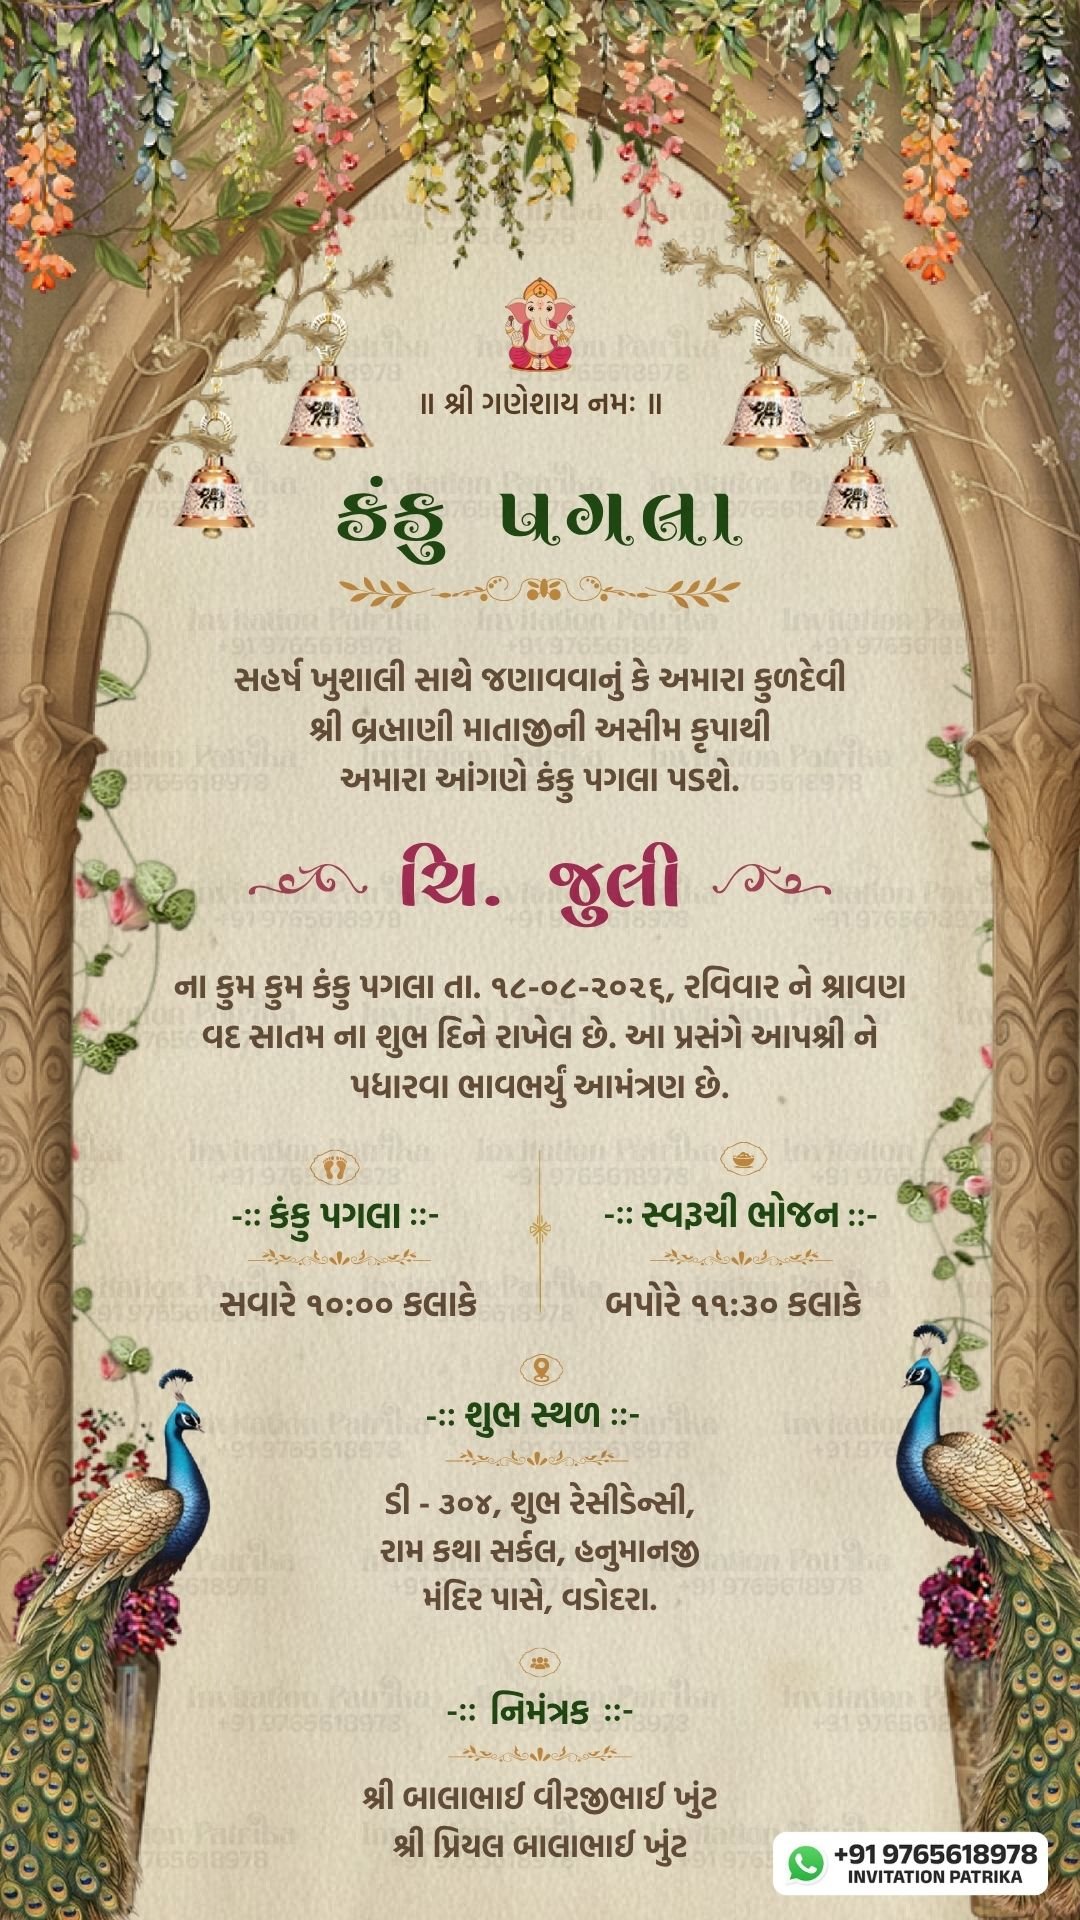 ॥ શ્રી ગણેશાય નમઃ ॥
કંકુ પગલા
સહર્ષ ખુશાલી સાથે જણાવવાનું કે અમારા કુળદેવી
શ્રી બ્રહ્માણી માતાજીની અસીમ કૃપાથી
અમારા આંગણે કંકુ પગલા પડશે.
ચિ. જુલી
ના કુમ કુમ કંકુ પગલા તા. ૧૮-૦૮-૨૦૨૬, રવિવાર ને શ્રાવણ
વદ સાતમ ના શુભ દિને રાખેલ છે. આ પ્રસંગે આપશ્રી ને
પધારવા ભાવભર્યું આમંત્રણ છે.
-:: કંકુ પગલા ::-
સવારે ૧૦:૦૦ કલાકે
-:: સ્વરૂચી ભોજન ::-
બપોરે ૧૧:૩૦ કલાકે
-:: શુભ સ્થળ ::-
ડી - ૩૦૪, શુભ રેસીડેન્સી,
રામ કથા સર્કલ, હનુમાનજી
મંદિર પાસે, વડોદરા.
-:: નિમંત્રક ::-
શ્રી બાલાભાઈ વીરજીભાઈ ખુંટ
શ્રી પ્રિયલ બાલાભાઈ ખુંટ
+91 9765618978
INVITATION PATRIKA